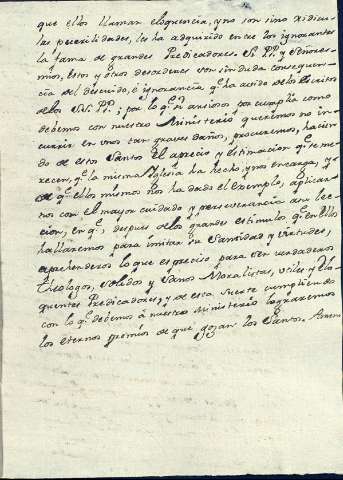 que ellos llaman eloquencia, y no son sino ridicu-
las puerilidades, les ha adquirido entre los ignorantes
la fama de grandes Predicadores. SS. PP. y Señores
mios, estos y otros desordenes son sin duda consequen-
cia del descuido, è ignorancia qᵉ ha avido de los Escritos
de los SS. PP.; por lo qᵉ si ansiosos por cumplir como
debemos con nuestro Ministerio queremos no in-
currir en unos tan graves daños, procuremos, hacien-
do de estos Santos el aprecio y estimacion qᵉ se me-
recen, qᵉ la misma Iglesia ha hecho, y nos encarga, y
de qᵉ ellos mismos nos ha dado el exemplo, aplicar-
nos con el mayor cuidado y perseverancia a su lec-
cion, en qᵉ, despues de los grandes estimulos qᵉ en ellos
hallaremos para imitar su Santidad y virtudes,
aprehenderemos lo que es preciso para ser verdaderos
Theologos, solidos y sanos Moralistas, utiles y elo-
quentes Predicadores, y de esta suerte cumpliendo
con lo qᵉ debemos à nuestro Ministerio lograremos
los eternos premios de que gozan los Santos. Amen